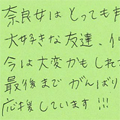 奈良女はとっても
大好きな友達、
今は大変かもしれ
最後までがんばり
応援しています!!!